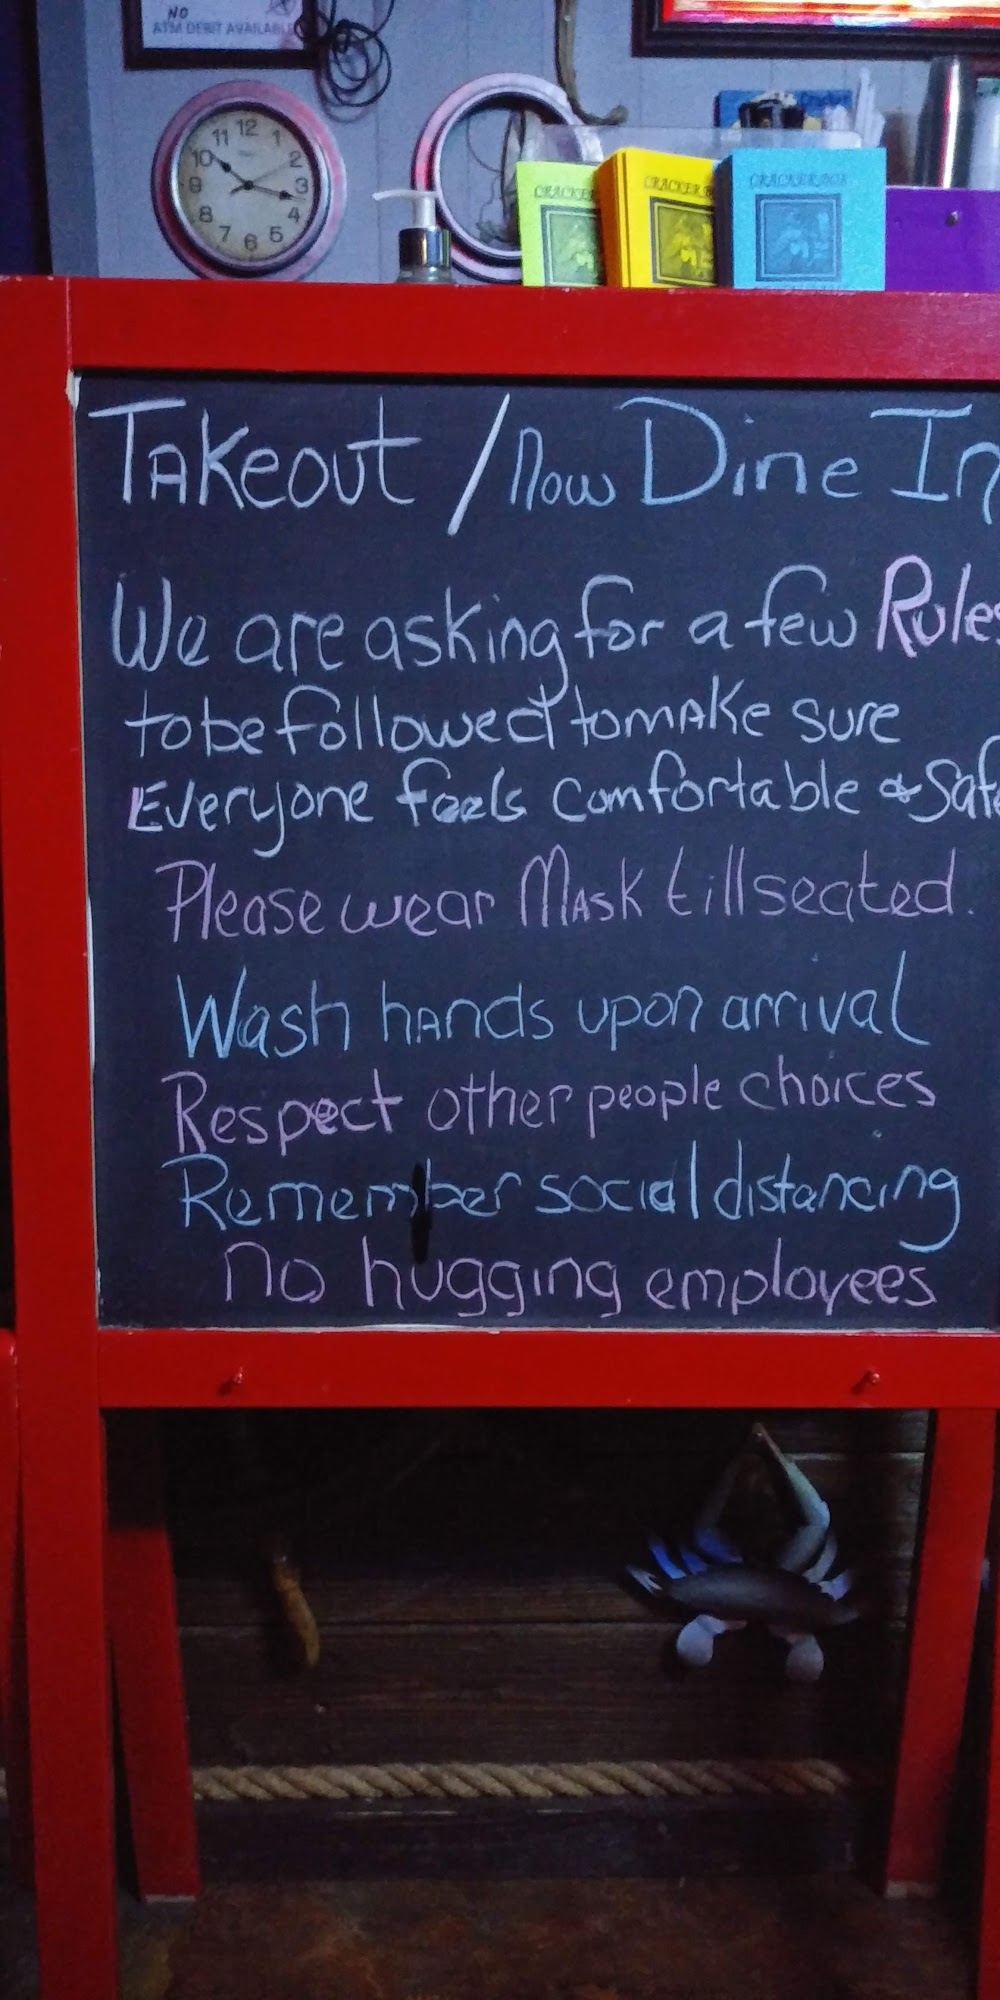 NO
ATM DEBIT AVAILABLE
11 12 1
10 2
9 3
8 4
7 6 5
CRACKER
CRACKER B
CRACKER BOX
Takeout / Now Dine In
We are asking for a few Rules
to be followed to make sure
Everyone feels comfortable & Safe
Please wear Mask till seated.
Wash hands upon arrival
Respect other people choices
Remember social distancing
no hugging employees